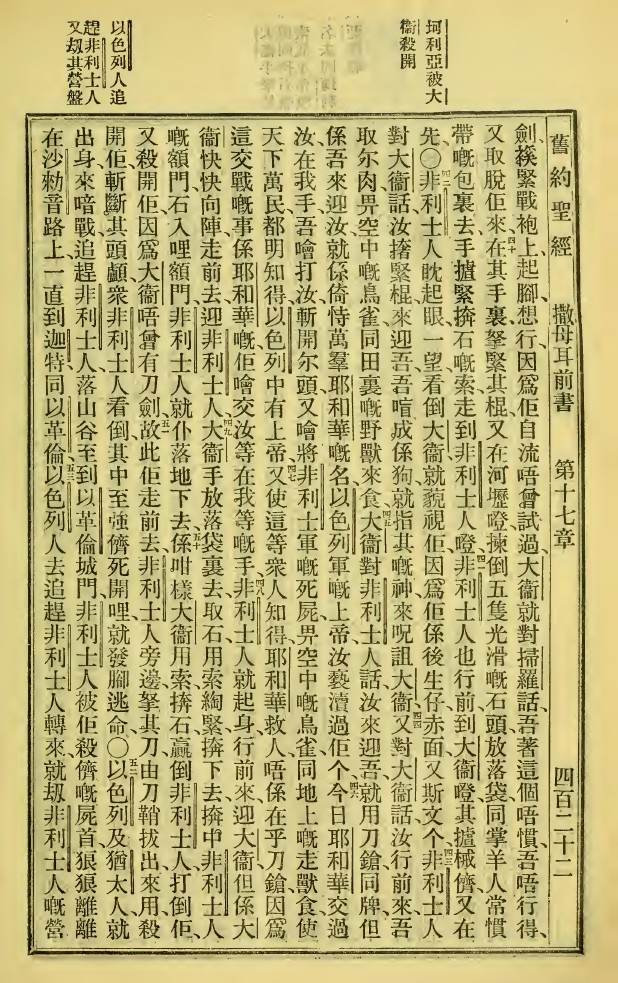 舊約聖經 撒母耳前書 第十七章 四百二十二
坷利亞被大
衞殺開
以色列人追
趕非利士人
又刼其營盤
劍、褰緊戰袍上、起腳想行、因爲佢自流唔曾試過、大衞就對掃羅話、吾著這個唔慣、吾唔行得、
又取脫佢來、四十在其手裏拏緊其棍、又在河壢墱揀倒五隻光滑嘅石頭、放落袋、同掌羊人常慣
帶嘅包裏去、手攎緊擠石嘅索、走到非利士人墱、四一非利士人也行前到大衞墱、其攎械儕又在
先、〇四二非利士人眈起眼一望、看倒大衞就藐視佢、因爲佢係後生仔、赤面又斯文个、四三非利士人
對大衞話、汝撦緊棍來迎吾、吾喧成係狗、就指其嘅神來呪詛大衞、四四又對大衞話、汝行前來、吾
取尔肉畀空中嘅鳥雀、同田裏嘅野獸來食、四五大衞對非利士人話、汝來迎吾就用刀鎗同牌、但
係吾來迎汝、就係倚恃萬羣耶和華嘅名、以色列軍嘅上帝、汝褻瀆過佢个、四六今日耶和華交過
汝在我手、吾噲打汝、斬開尔頭、又噲將非利士軍嘅死屍、畀空中嘅鳥雀、同地上嘅走獸食、使
天下萬民都明知得以色列中有上帝、四七又使這等衆人知得耶和華救人、唔係在乎刀鎗、因爲
這交戰嘅事係耶和華嘅、佢噲交汝等在我等嘅手、四八非利士人就起身行前來迎大衞、但係大
衞快快向陣走前去迎非利士人、四九大衞手放落袋裏去取石、用索綯緊擠下去、擠中非利士人
嘅額門、石入哩額門、非利士人就仆落地下去、五十係咁樣大衞用索擠石、贏倒非利士人、打倒佢、
又殺開佢、因爲大衞唔曾有刀劍、五一故此佢走前去非利士人旁邊、拏其刀由刀鞘拔出來、用殺
開佢、斬斷其頭顱、衆非利士人看倒其中至強儕死開哩、就發腳逃命、〇五二以色列及猶太人就
出身來喑戰、追趕非利士人、落山谷至到以革倫城門、非利士人被佢殺儕嘅屍首、狽狽離離
在沙勑音路上、一直到迦特同以革倫、五三以色列人去追趕非利士人轉來、就刼非利士人嘅營